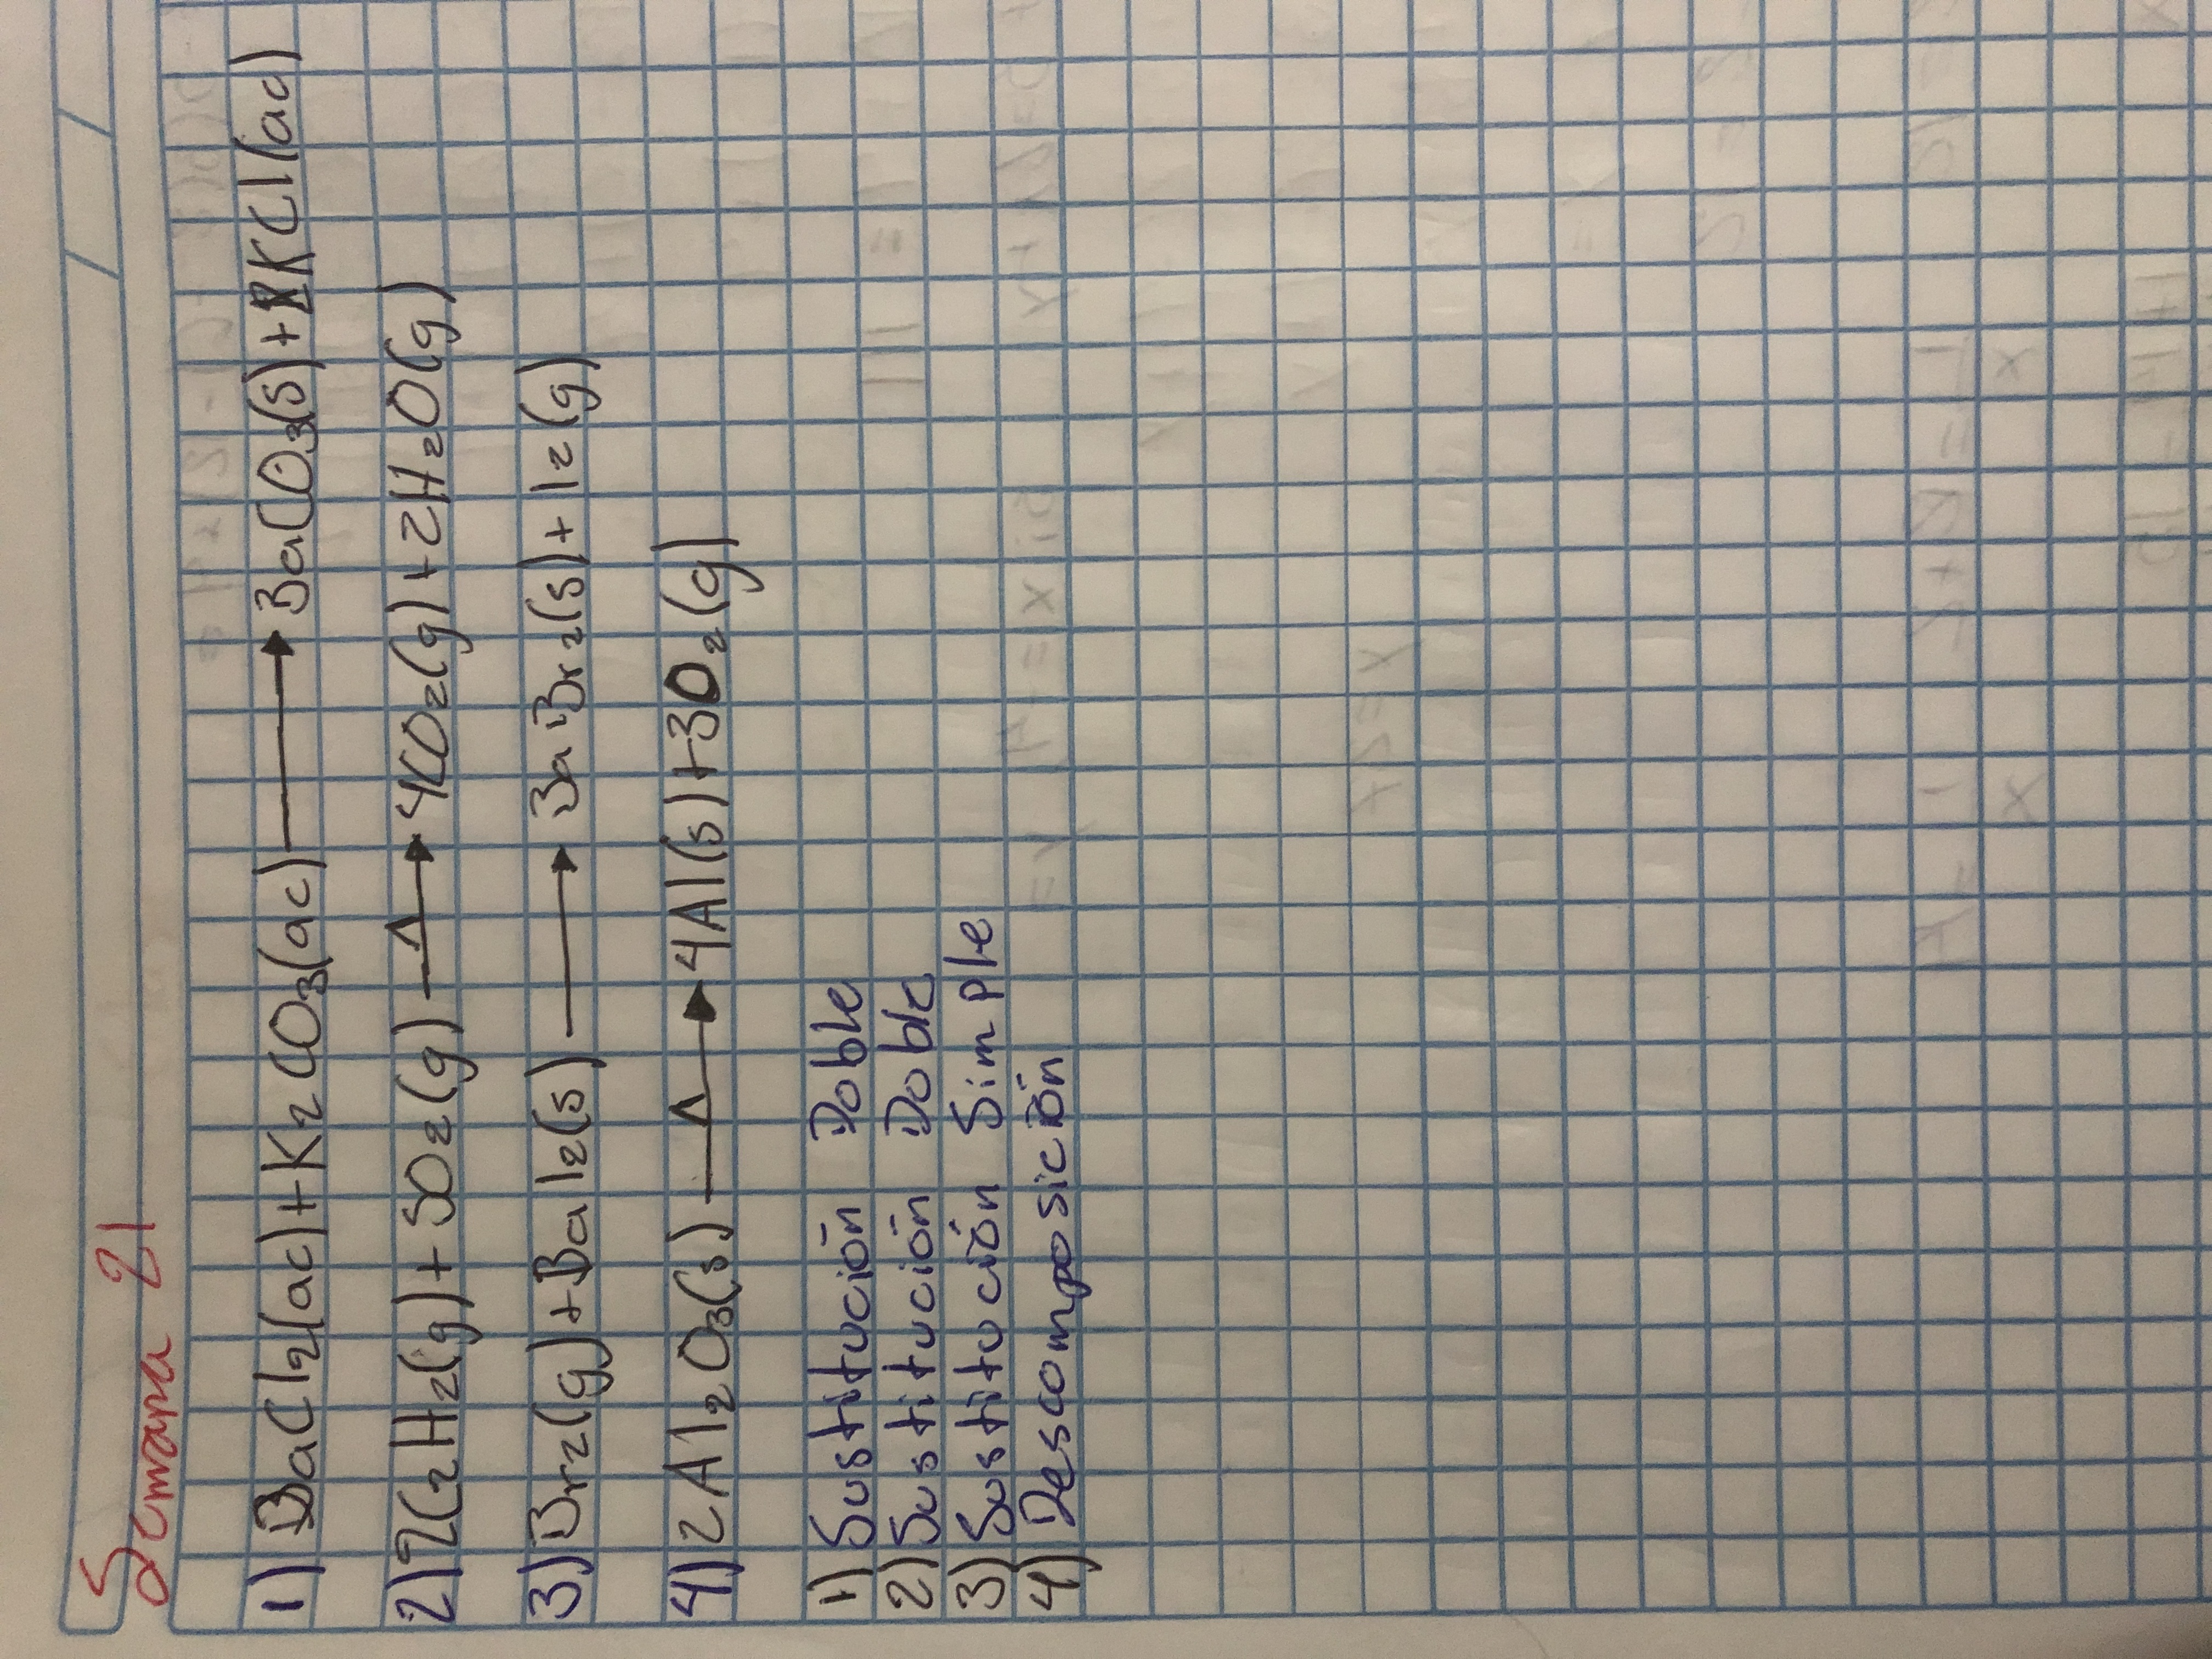 Semana 21
1) BaCl₂(ac)+K₂CO₃(ac)⟶BaCO₃(s)+2KCl(ac)
2) 2C₂H₂(g)+5O₂(g)—Δ→4CO₂(g)+2H₂O(g)
3) Br₂(g)+BaI₂(s)⟶BaBr₂(s)+I₂(g)
4) 2Al₂O₃(s)—Δ→4Al(s)+3O₂(g)
1) Sustitución Doble
2) Sustitución Doble
3) Sustitución Simple
4) Descomposición